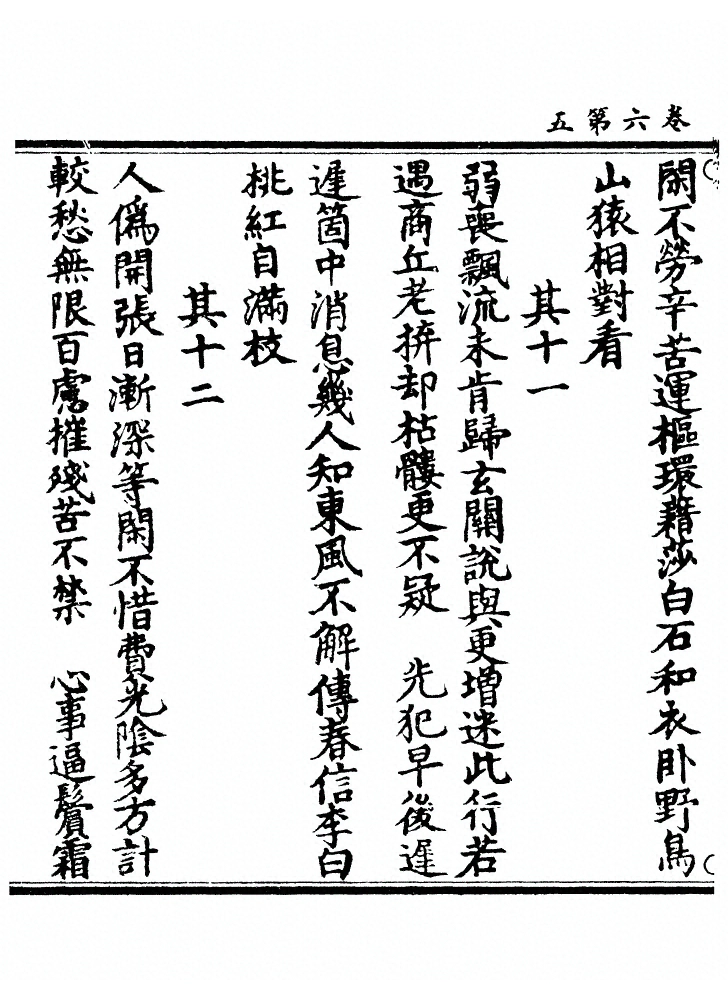 卷六第五
閑不勞辛苦運樞環藉莎白石和衣卧野鳥
山猿相對看
其十一
弱喪飄流未肯歸玄關說與更增迷此行若
遇商丘老拚却枯髏更不疑　先犯早後遲
遲箇中消息幾人知東風不解傳春信李白
桃紅自滿枝
其十二
人偽開張日漸深等閑不惜費光陰多方計
較愁無限百慮摧殘苦不禁　心事逼鬢霜